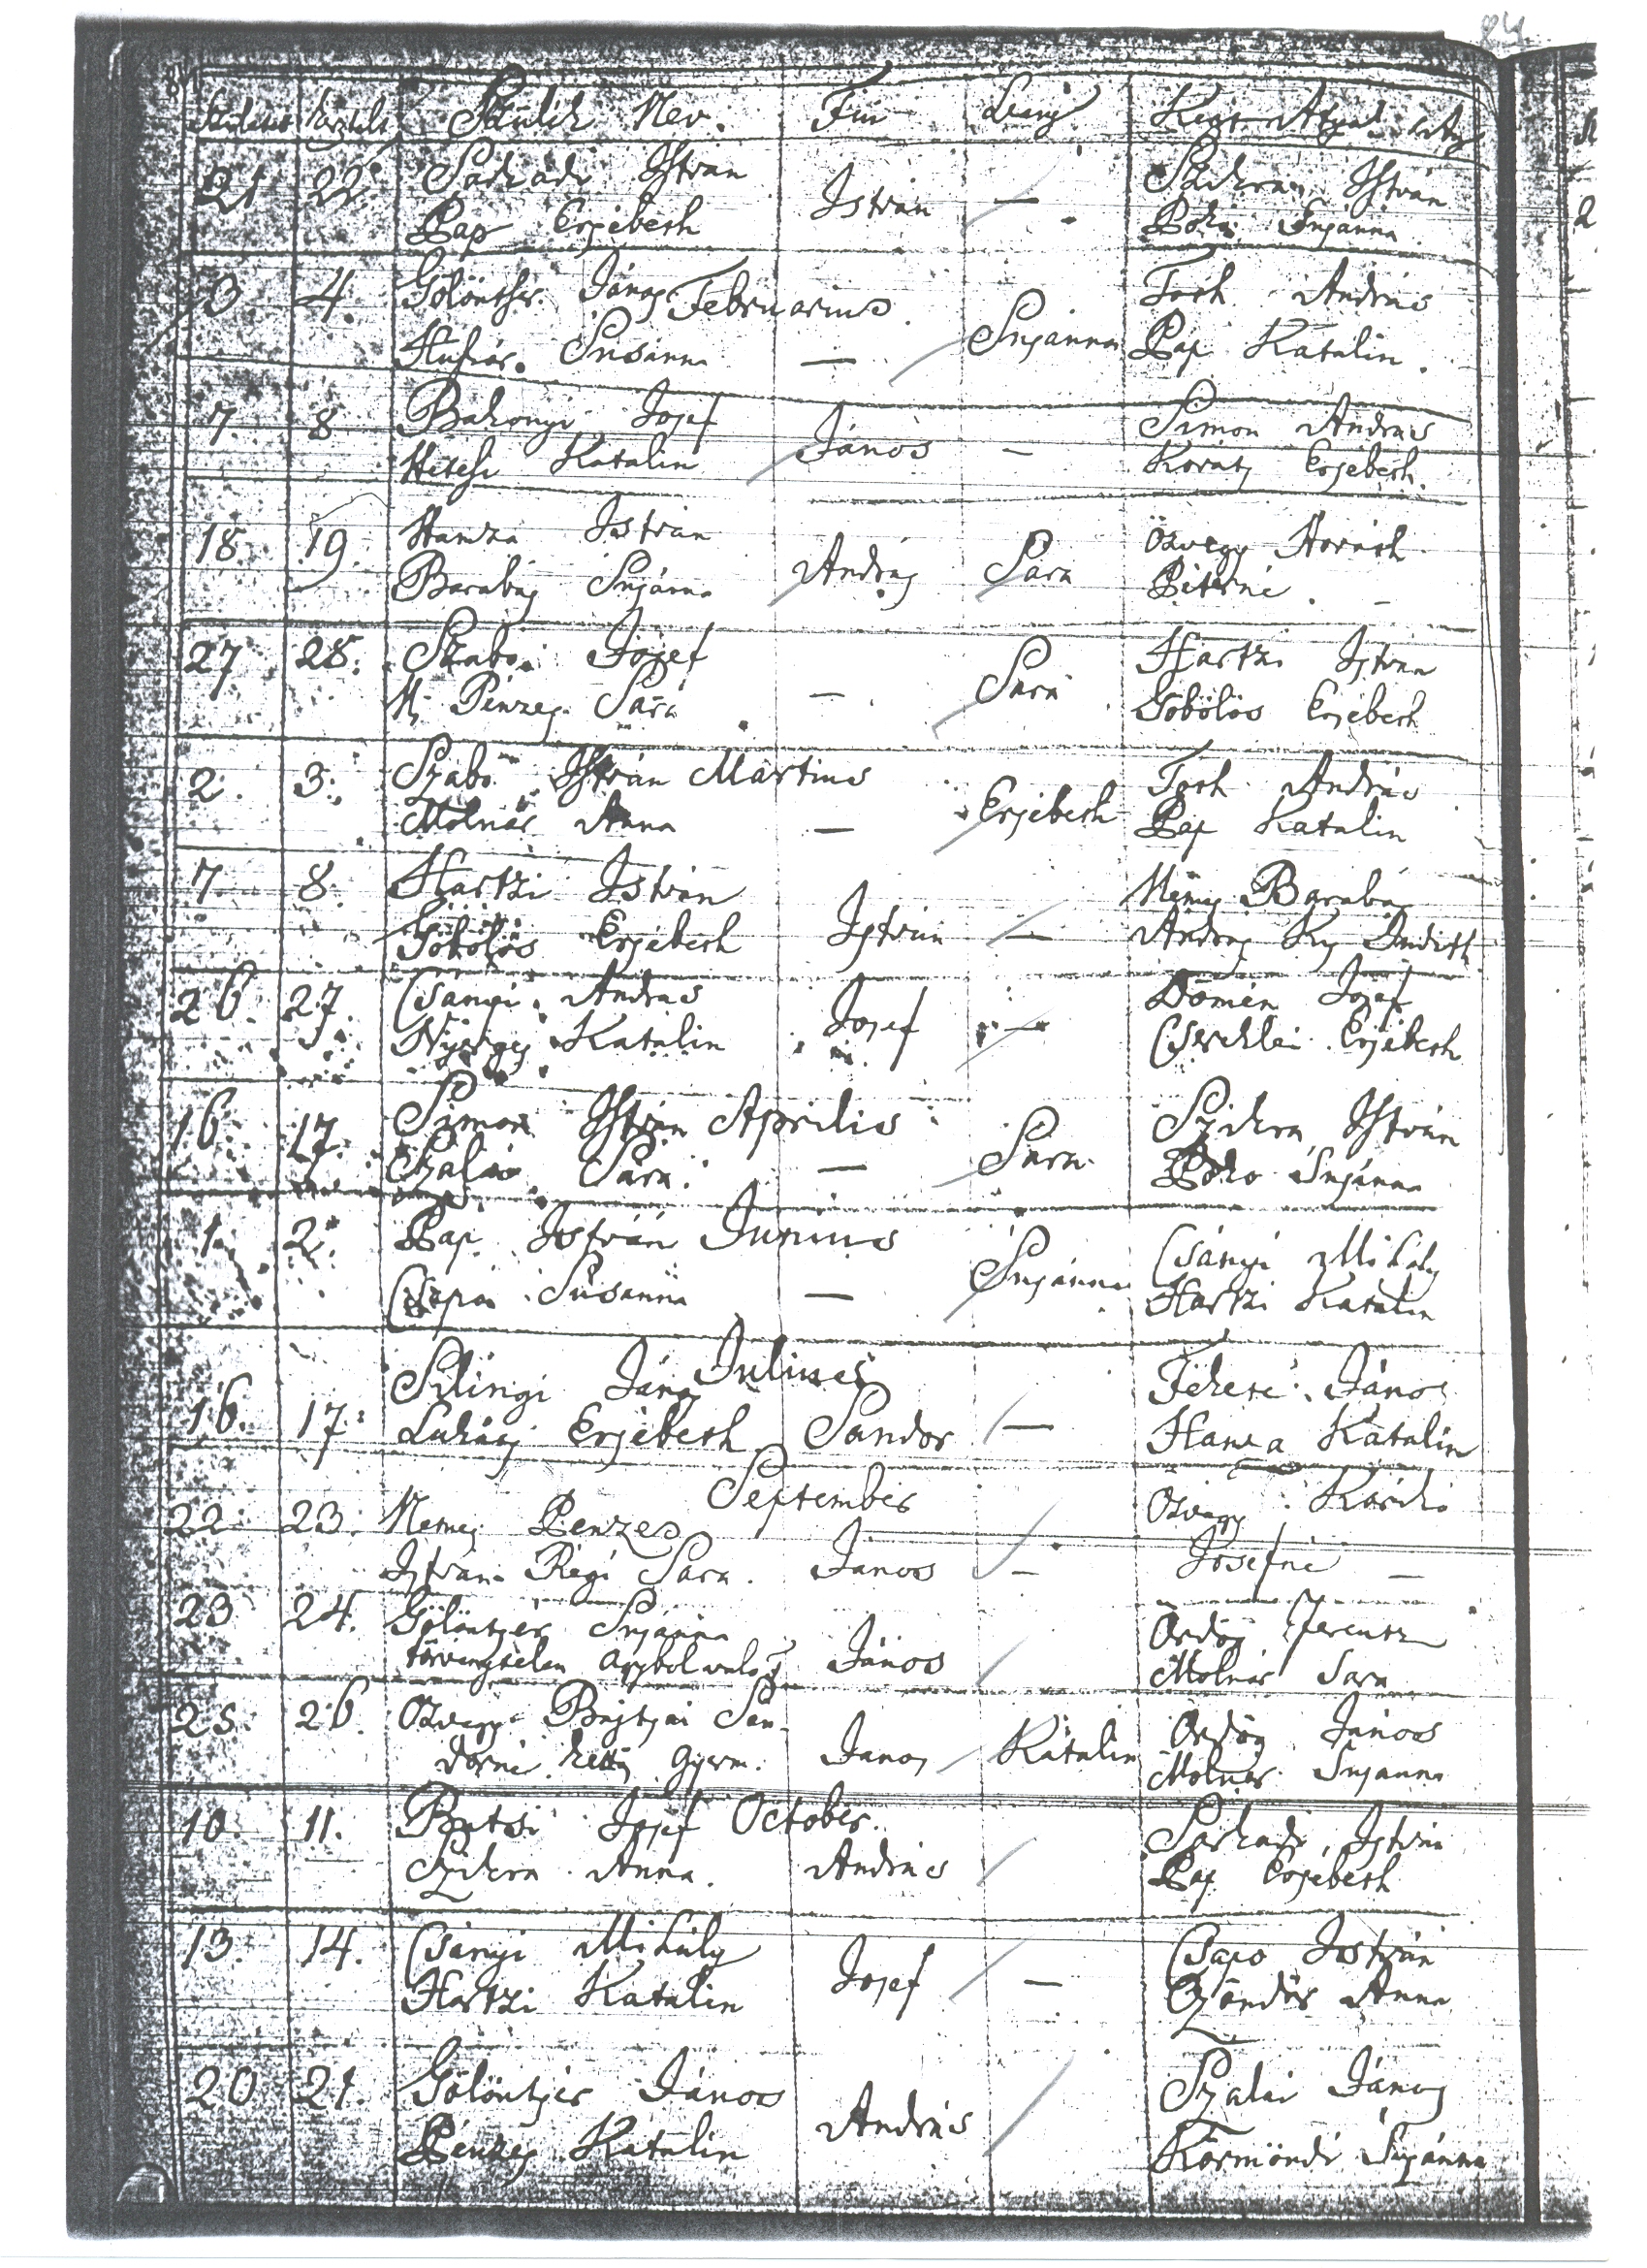 84
Szülik Nev. Fiu Leány
21 22. Sárkádi István István — Szidern István
Pap Ersébeth Póka Susanna
3. 4. Gölöntsér János Februarius Toth András
Susánna — Susánna Pap Katalin.
7. 8 Bakonyi Josef János — Simon András
Katalin Korátz Ersébeth.
18. 19. Hamza István András Sára Özvegy Horváth
Barabás Susánna Péterné. —
27 28. Szabó Jósef — Sára Hartzi István
N. Pénzes Sára Göbölös Ersébeth
2. 3. Szabó István Martius Toth András
Molnár Anna — Ersébeth Pap Katalin
7. 8. Hartzi István István — Nemes Barabás
Göbölös Ersébeth András Kis Judith
26. 27. Csányi András Josef — Dömén Josef
Nyerges Katalin Ersébeth
16. 17. Simon István Aprilis Sára Szidern István
Szalai Sára. — Póka Susánna
1. 2. Pap István Junius Susánna Csányi Mihály
Csapó Susánna — Hartzi Katalin
Silingi János Julius Fekete János
16. 17. Lukáts Ersébeth Sándor — Hamza Katalin
September
22. 23. Nemes Penzes Özvegy
István Régi Sára. János — Josefné —
23 24. Gölöntsér Susánna János Ördög Ferentz
törvénytelen Molnár Sára
25. 26. Özvegy San- János Katalin Ördög János
dorné kettős Gyerm. Molnár Susanna
10. 11. Butsi Josef October. Sárkádi István
Szidern Anna. András Pap Ersébeth
13. 14. Csányi Mihály Josef — Csapo István
Hartzi Katalin Anna
20 21. Gölöntsér János András Szalai János
Pénzes Katalin Körmöndi Susánna